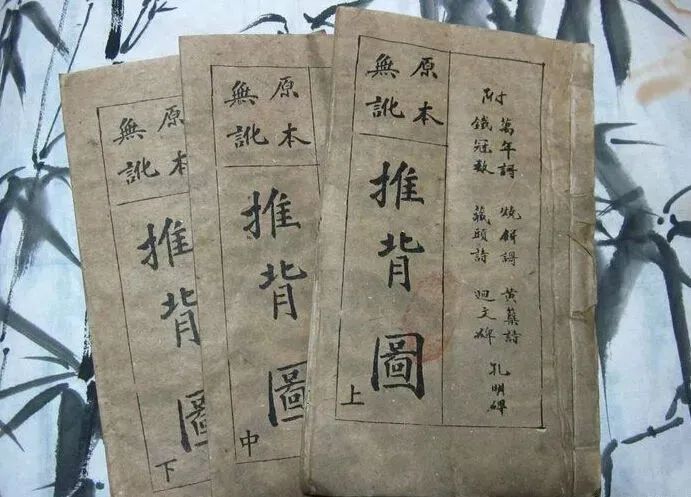 附
萬年謌 燒餅謌 黃蘗詩
鐵冠數 藏頭詩 迴文碑
孔明碑
原本
無訛
推背圖
上
原本
無訛
推背圖
中
原本
無訛
推背圖
下